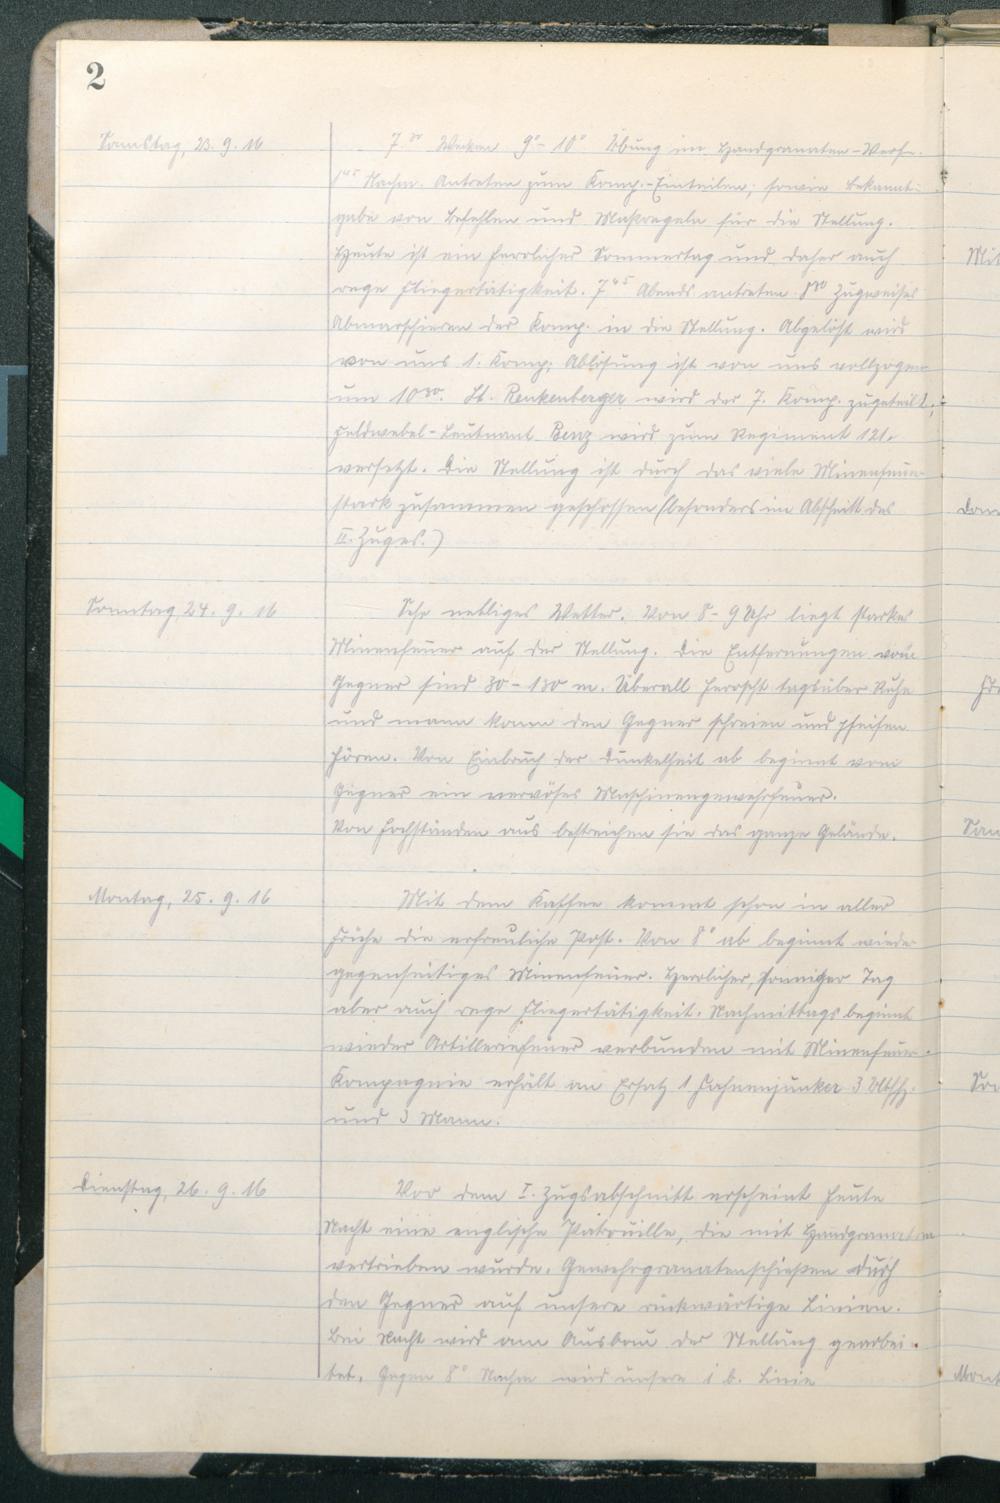 2
Samstag, 23. 9. 16
7.30 Wecken 9°- 10° Übung im Handgranaten-Werfen.
1 45 Nachm. Antreten zum Komp.-Einteilen; sowie Bekannt-
gabe von Befehlen und Maßregeln für die Stellung.
Heute ist ein herrlicher Sommertag und daher auch
rege Fliegertätigkeit. 7 45 Abends antreten. 8 30 Zugweises
Abmarschieren der Komp. in die Stellung. Abgelöst wird
von uns 1. Komp; Ablösung ist von uns vollzogen
um 10 30. Lt. Renkenberger wird der 7. Komp. zugeteilt;
Feldwebel-Leutnant Benz wird zum Regiment 121.
versetzt. Die Stellung ist durch das viele Minenfeuer
stark zusammen geschossen (besonders im Abschnitt des
II. Zuges.)
Sonntag, 24. 9. 16
Sehr nebliges Wetter. Von 8 - 9 Uhr liegt starkes
Minenfeuer auf der Stellung. Die Entfernungen vom
Gegner sind 30 - 130 m. Überall herrscht tagsüber Ruhe
und mann kann den Gegner schreien und pfeifen
hören. Von Einbruch der Dunkelheit ab beginnt vom
Gegner ein nervöses Maschinengewehrfeuer.
Von Hochständen aus bestreichen sie das ganze Gelände.
Montag, 25. 9. 16
Mit dem Kaffee kommt schon in aller
Frühe die erfreuliche Post. Von 8° ab beginnt wieder
gegenseitiges Minenfeuer. Herrlicher, sonniger Tag
aber auch rege Fliegertätigkeit. Nachmittags beginnt
wieder Artilleriefeuer verbunden mit Minenfeuer.
Kompagnie erhält an Ersatz 1 Fahnenjunker 3 Utffz.
und 3 Mann.
Dienstag, 26. 9. 16
Vor dem I. Zugsabschnitt erscheint heute
Nacht eine englische Patrouille, die mit Handgranaten
vertrieben wurde. Gewehrgranatenschießen durch
den Gegner auf unsere rückwärtige Linien.
Bei Nacht wird am Ausbau der Stellung gearbei-
tet. Gegen 8° Nachm wird unsere 1 b. Linie
Mit
Don
Sam
Son
Mont